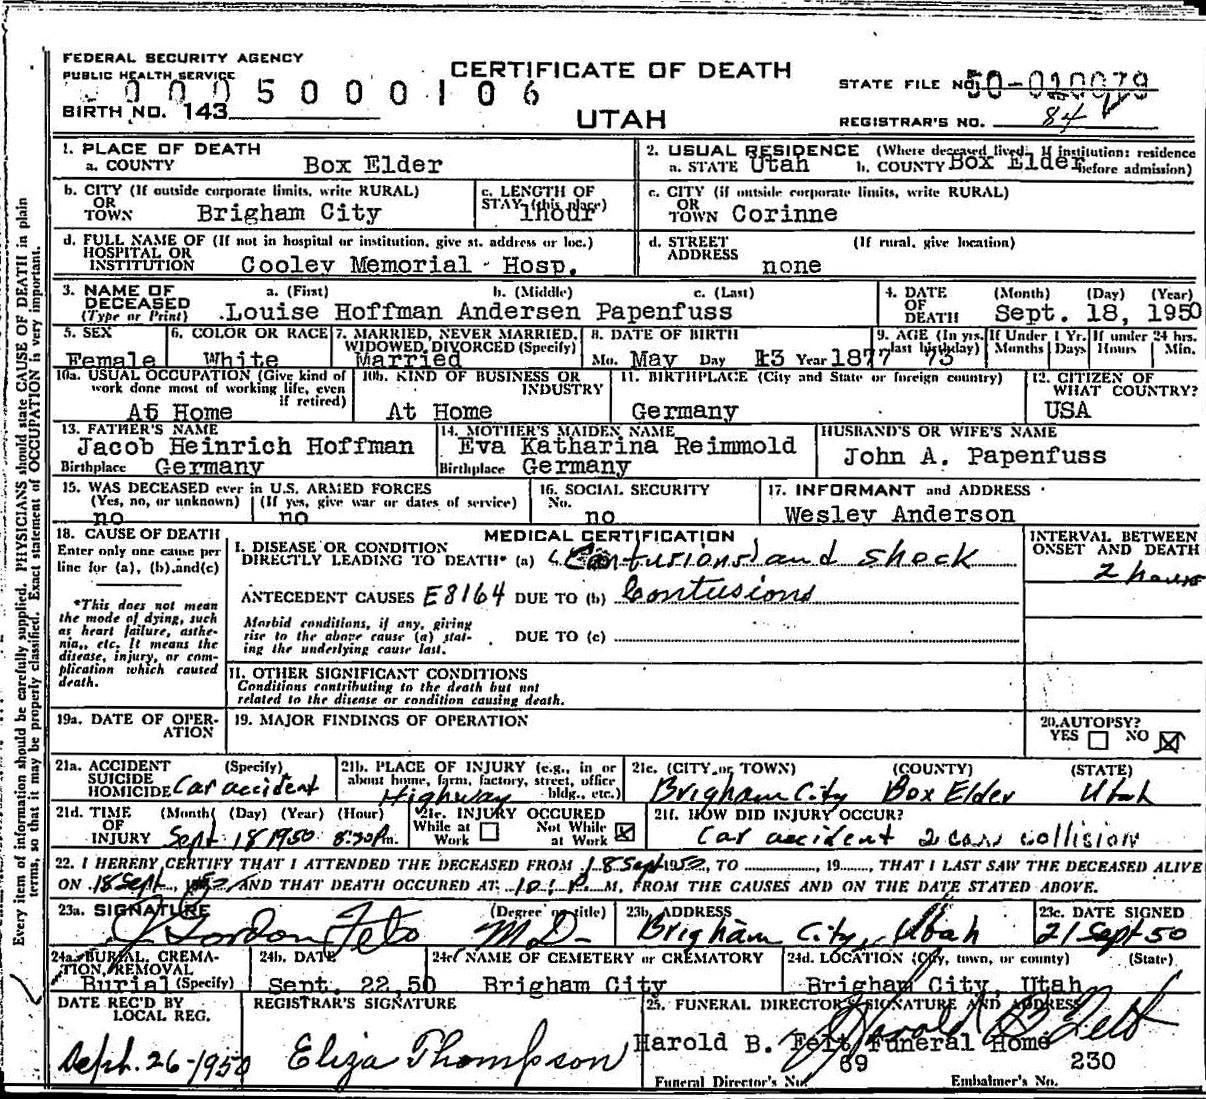 FEDERAL SECURITY AGENCY
PUBLIC HEALTH SERVICE
CERTIFICATE OF DEATH
STATE FILE NO.
0005000106
BIRTH NO. 143
UTAH
REGISTRAR'S NO. 84
1. PLACE OF DEATH
a. COUNTY Box Elder
2. USUAL RESIDENCE (Where deceased lived. If institution: residence before admission)
a. STATE Utah b. COUNTY Box Elder
b. CITY (If outside corporate limits, write RURAL)
OR
TOWN Brigham City
c. LENGTH OF
STAY (this place)
1hour
c. CITY (if outside corporate limits, write RURAL)
OR
TOWN Corinne
d. FULL NAME OF (If not in hospital or institution, give st. address or loc.)
HOSPITAL OR
INSTITUTION Cooley Memorial Hosp.
d. STREET (If rural, give location)
ADDRESS
none
3. NAME OF a. (First) b. (Middle) c. (Last)
DECEASED
(Type or Print) Louise Hoffman Andersen Papenfuss
4. DATE (Month) (Day) (Year)
OF
DEATH Sept. 18, 1950
5. SEX
Female
6. COLOR OR RACE
White
7. MARRIED, NEVER MARRIED,
WIDOWED, DIVORCED (Specify)
Married
8. DATE OF BIRTH
Mo. May Day 13 Year 1877
9. AGE (In yrs. last birthday) 73
If Under 1 Yr.
Months Days
If under 24 hrs.
Hours Min.
10a. USUAL OCCUPATION (Give kind of
work done most of working life, even
if retired)
At Home
10b. KIND OF BUSINESS OR
INDUSTRY
At Home
11. BIRTHPLACE (City and State or foreign country)
Germany
12. CITIZEN OF
WHAT COUNTRY?
USA
13. FATHER'S NAME
Jacob Heinrich Hoffman
Birthplace Germany
14. MOTHER'S MAIDEN NAME
Eva Katharina Reimmold
Birthplace Germany
HUSBAND'S OR WIFE'S NAME
John A. Papenfuss
15. WAS DECEASED ever in U.S. ARMED FORCES
(Yes, no, or unknown) (If yes, give war or dates of service)
no no
16. SOCIAL SECURITY
No.
no
17. INFORMANT and ADDRESS
Wesley Anderson
18. CAUSE OF DEATH
Enter only one cause per
line for (a), (b), and (c)
*This does not mean
the mode of dying, such
as heart failure, asthe-
nia,, etc. It means the
disease, injury, or com-
plication which caused
death.
MEDICAL CERTIFICATION
I. DISEASE OR CONDITION
DIRECTLY LEADING TO DEATH* (a) Contusions and shock
ANTECEDENT CAUSES E8164 DUE TO (b) Contusions
Morbid conditions, if any, giving
rise to the above cause (a) stat-
ing the underlying cause last.
DUE TO (c)
II. OTHER SIGNIFICANT CONDITIONS
Conditions contributing to the death but not
related to the disease or condition causing death.
INTERVAL BETWEEN
ONSET AND DEATH
2 hours
19a. DATE OF OPER-
ATION
19. MAJOR FINDINGS OF OPERATION
20. AUTOPSY?
YES NO
21a. ACCIDENT (Specify)
SUICIDE
HOMICIDE Car accident
21b. PLACE OF INJURY (e.g., in or
about home, farm, factory, street, office
bldg., etc.)
Highway
21c. (CITY or TOWN) (COUNTY) (STATE)
Brigham City Box Elder Utah
21d. TIME (Month) (Day) (Year) (Hour)
OF
INJURY Sept. 18 1950 8:30 Pm.
21e. INJURY OCCURED
While at Work Not While at Work
21f. HOW DID INJURY OCCUR?
Car accident 2 cars collision
22. I HEREBY CERTIFY THAT I ATTENDED THE DECEASED FROM 18 Sept 1950, TO 19, THAT I LAST SAW THE DECEASED ALIVE
ON 18 Sept, AND THAT DEATH OCCURED AT 10:P.M, FROM THE CAUSES AND ON THE DATE STATED ABOVE.
23a. SIGNATURE (Degree or title)
J Gordon Felt M.D.
23b. ADDRESS
Brigham City, Utah
23c. DATE SIGNED
21 Sept 50
24a. BURIAL, CREMA-
TION, REMOVAL
Burial (Specify)
24b. DATE
Sept. 22,50
24c. NAME OF CEMETERY or CREMATORY
Brigham City
24d. LOCATION (City, town, or county) (State)
Brigham City, Utah
DATE REC'D BY
LOCAL REG.
Sept. 26-1950
REGISTRAR'S SIGNATURE
Eliza Thompson
25. FUNERAL DIRECTOR'S SIGNATURE AND ADDRESS
Harold B. Felt
Harold B. Felt Funeral Home
69 230
Funeral Director's No. Embalmer's No.
Every item of information should be carefully supplied. PHYSICIANS should state CAUSE OF DEATH in plain
terms, so that it may be properly classified. Exact statement of OCCUPATION is very important.